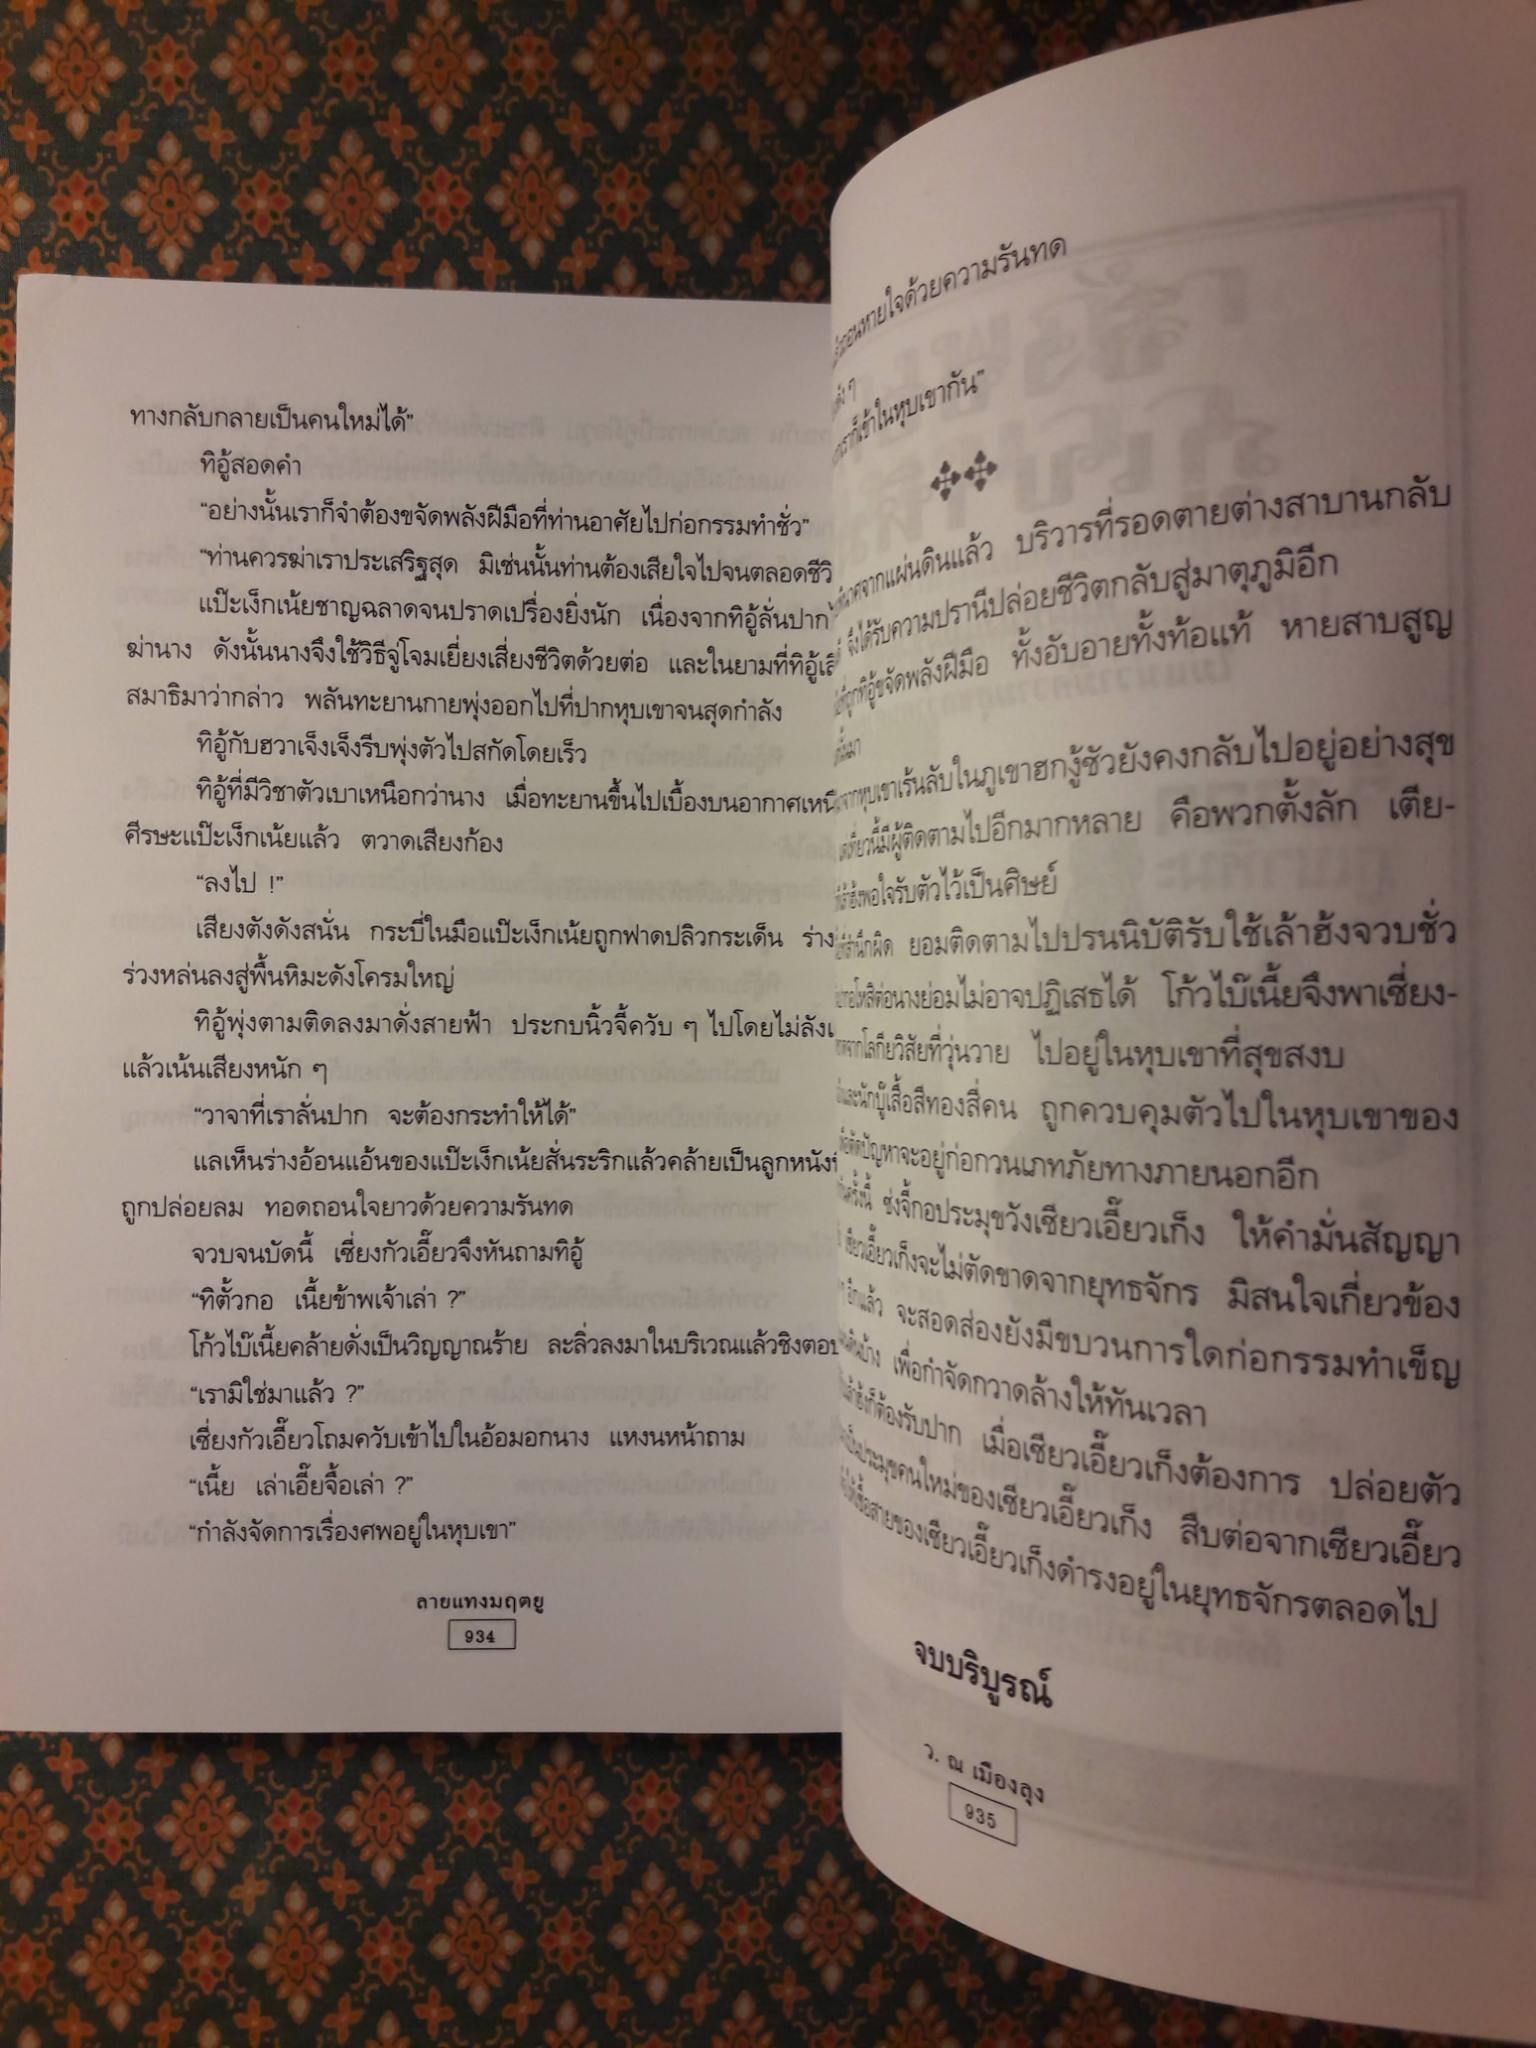 ทางกลับกลายเป็นคนใหม่ได้”
ทิอู้สอดคำ
“อย่างนั้นเราก็จำต้องขจัดพลังฝีมือที่ท่านอาศัยไปก่อกรรมทำชั่ว”
“ท่านควรฆ่าเราประเสริฐสุด มิเช่นนั้นท่านต้องเสียใจไปจนตลอดชีวิ
แป๊ะเง็กเน้ยชาญฉลาดจนปราดเปรื่องยิ่งนัก เนื่องจากทิอู้ลั่นปาก
ฆ่านาง ดังนั้นนางจึงใช้วิธีจู่โจมเยี่ยงเสี่ยงชีวิตด้วยต่อ และในยามที่ทิอู้เสี
สมาธิมาว่ากล่าว พลันทะยานกายพุ่งออกไปที่ปากหุบเขาจนสุดกำลัง
ทิอู้กับฮวาเจ็งเจ็งรีบพุ่งตัวไปสกัดโดยเร็ว
ทิอู้ที่มีวิชาตัวเบาเหนือกว่านาง เมื่อทะยานขึ้นไปเบื้องบนอากาศเหนื
ศีรษะแป๊ะเง็กเน้ยแล้ว ตวาดเสียงก้อง
“ลงไป !”
เสียงตังดังสนั่น กระบี่ในมือแป๊ะเง็กเน้ยถูกฟาดปลิวกระเด็น ร่าง
ร่วงหล่นลงสู่พื้นหิมะดังโครมใหญ่
ทิอู้พุ่งตามติดลงมาดั่งสายฟ้า ประกบนิ้วจี้ควับ ๆ ไปโดยไม่ลังเ
แล้วเน้นเสียงหนัก ๆ
“วาจาที่เราลั่นปาก จะต้องกระทำให้ได้”
แลเห็นร่างอ้อนแอ้นของแป๊ะเง็กเน้ยสั่นระริกแล้วคล้ายเป็นลูกหนัง
ถูกปล่อยลม ทอดถอนใจยาวด้วยความรันทด
จวบจนบัดนี้ เซี่ยงกัวเอี๊ยวจึงหันถามทิอู้
“ทิตั้วกอ เนี้ยข้าพเจ้าเล่า ?”
โก้วไบ๊เนี้ยคล้ายดั่งเป็นวิญญาณร้าย ละลิ่วลงมาในบริเวณแล้วชิงตอบ
“เรามิใช่มาแล้ว ?”
เซี่ยงกัวเอี๊ยวโถมควับเข้าไปในอ้อมอกนาง แหงนหน้าถาม
“เนี้ย เล่าเอี๊ยจื้อเล่า ?”
“กำลังจัดการเรื่องศพอยู่ในหุบเขา”
ลายแทงมฤตยู
934
ถอนหายใจด้วยความรันทด
ๆ
เราก็เข้าในหุบเขากัน”
จากแผ่นดินแล้ว บริวารที่รอดตายต่างสาบานกลับ
จึงได้รับความปรานีปล่อยชีวิตกลับสู่มาตุภูมิอีก
ที่ถูกทิอู้ขจัดพลังฝีมือ ทั้งอับอายทั้งท้อแท้ หายสาบสูญ
จากหุบเขาเร้นลับในภูเขาฮกงู้ซัวยังคงกลับไปอยู่อย่างสุข
เที่ยวนี้มีผู้ติดตามไปอีกมากหลาย คือพวกตั้งลัก เตีย-
พอใจรับตัวไว้เป็นศิษย์
สำนึกผิด ยอมติดตามไปปรนนิบัติรับใช้เล้าฮ้งจวบชั่ว
ต่อนางย่อมไม่อาจปฏิเสธได้ โก้วไบ๊เนี้ยจึงพาเซี่ยง-
จากโลกียวิสัยที่วุ่นวาย ไปอยู่ในหุบเขาที่สุขสงบ
และนักบู๊เสื้อสีทองสี่คน ถูกควบคุมตัวไปในหุบเขาของ
ปัญหาจะอยู่ก่อกวนเภทภัยทางภายนอกอีก
ครั้งนี้ ซ่งจี้กอประมุขวังเซียวเอี๊ยวเก็ง ให้คำมั่นสัญญา
เซียวเอี๊ยวเก็งจะไม่ตัดขาดจากยุทธจักร มิสนใจเกี่ยวข้อง
อีกแล้ว จะสอดส่องยังมีขบวนการใดก่อกรรมทำเข็ญ
บ้าง เพื่อกำจัดกวาดล้างให้ทันเวลา
ก็ต้องรับปาก เมื่อเซียวเอี๊ยวเก็งต้องการ ปล่อยตัว
เป็นประมุขคนใหม่ของเซียวเอี๊ยวเก็ง สืบต่อจากเซียวเอี๊ยว
เชื้อสายของเซียวเอี๊ยวเก็งดำรงอยู่ในยุทธจักรตลอดไป
จบบริบูรณ์
ว. ณ เมืองลุง
935